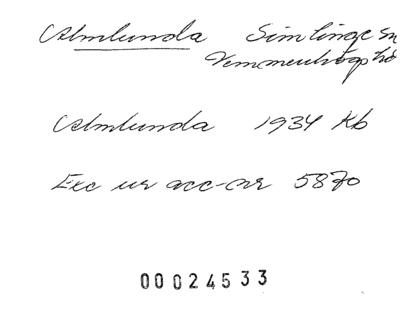 Almlunda Simlinge sn
Vemmenhögs hd
Almlunda 1934 Kb
Exc ur acc-nr 5870
00024533